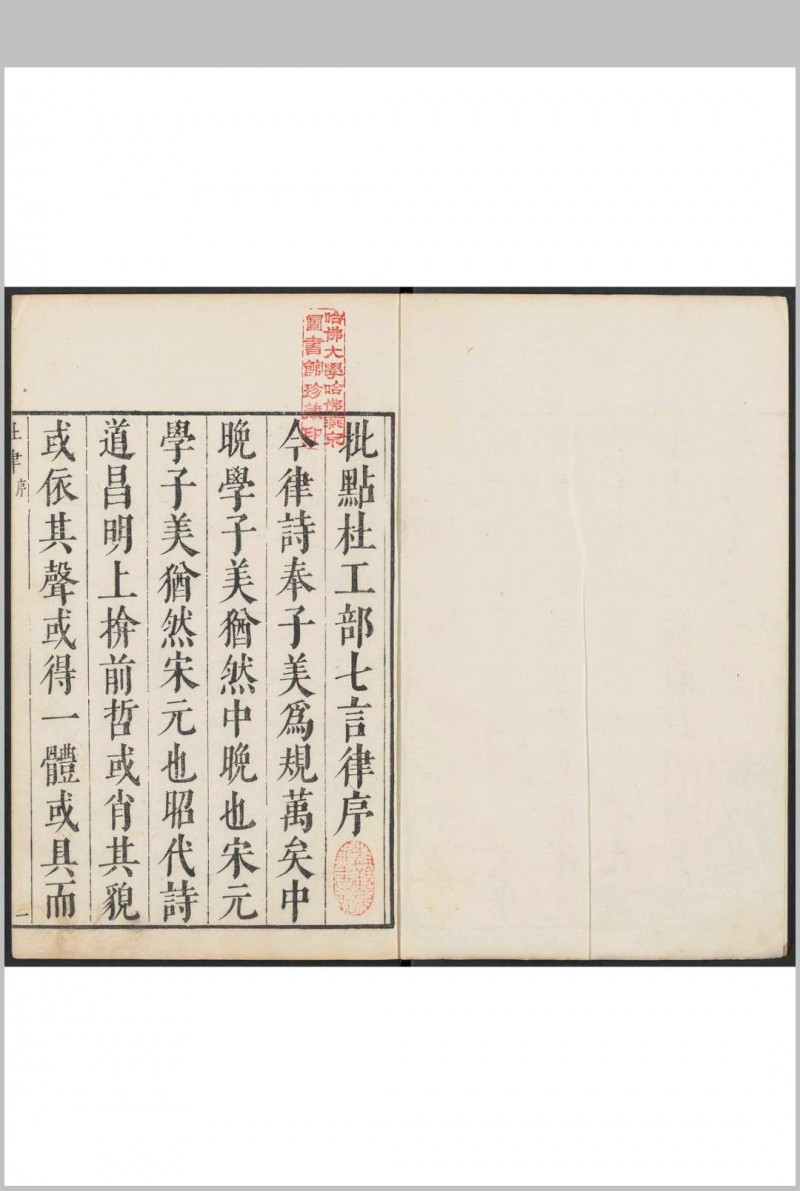 哈佛大學哈佛燕京
圖書館珍藏印
批點杜工部七言律序
今律詩奉子美爲規萬矣中
晚學子美猶然中晚也宋元
學子美猶然宋元也昭代詩
道昌明上揜前哲或肖其貌
或依其聲或得一體或具而
杜律
序
一